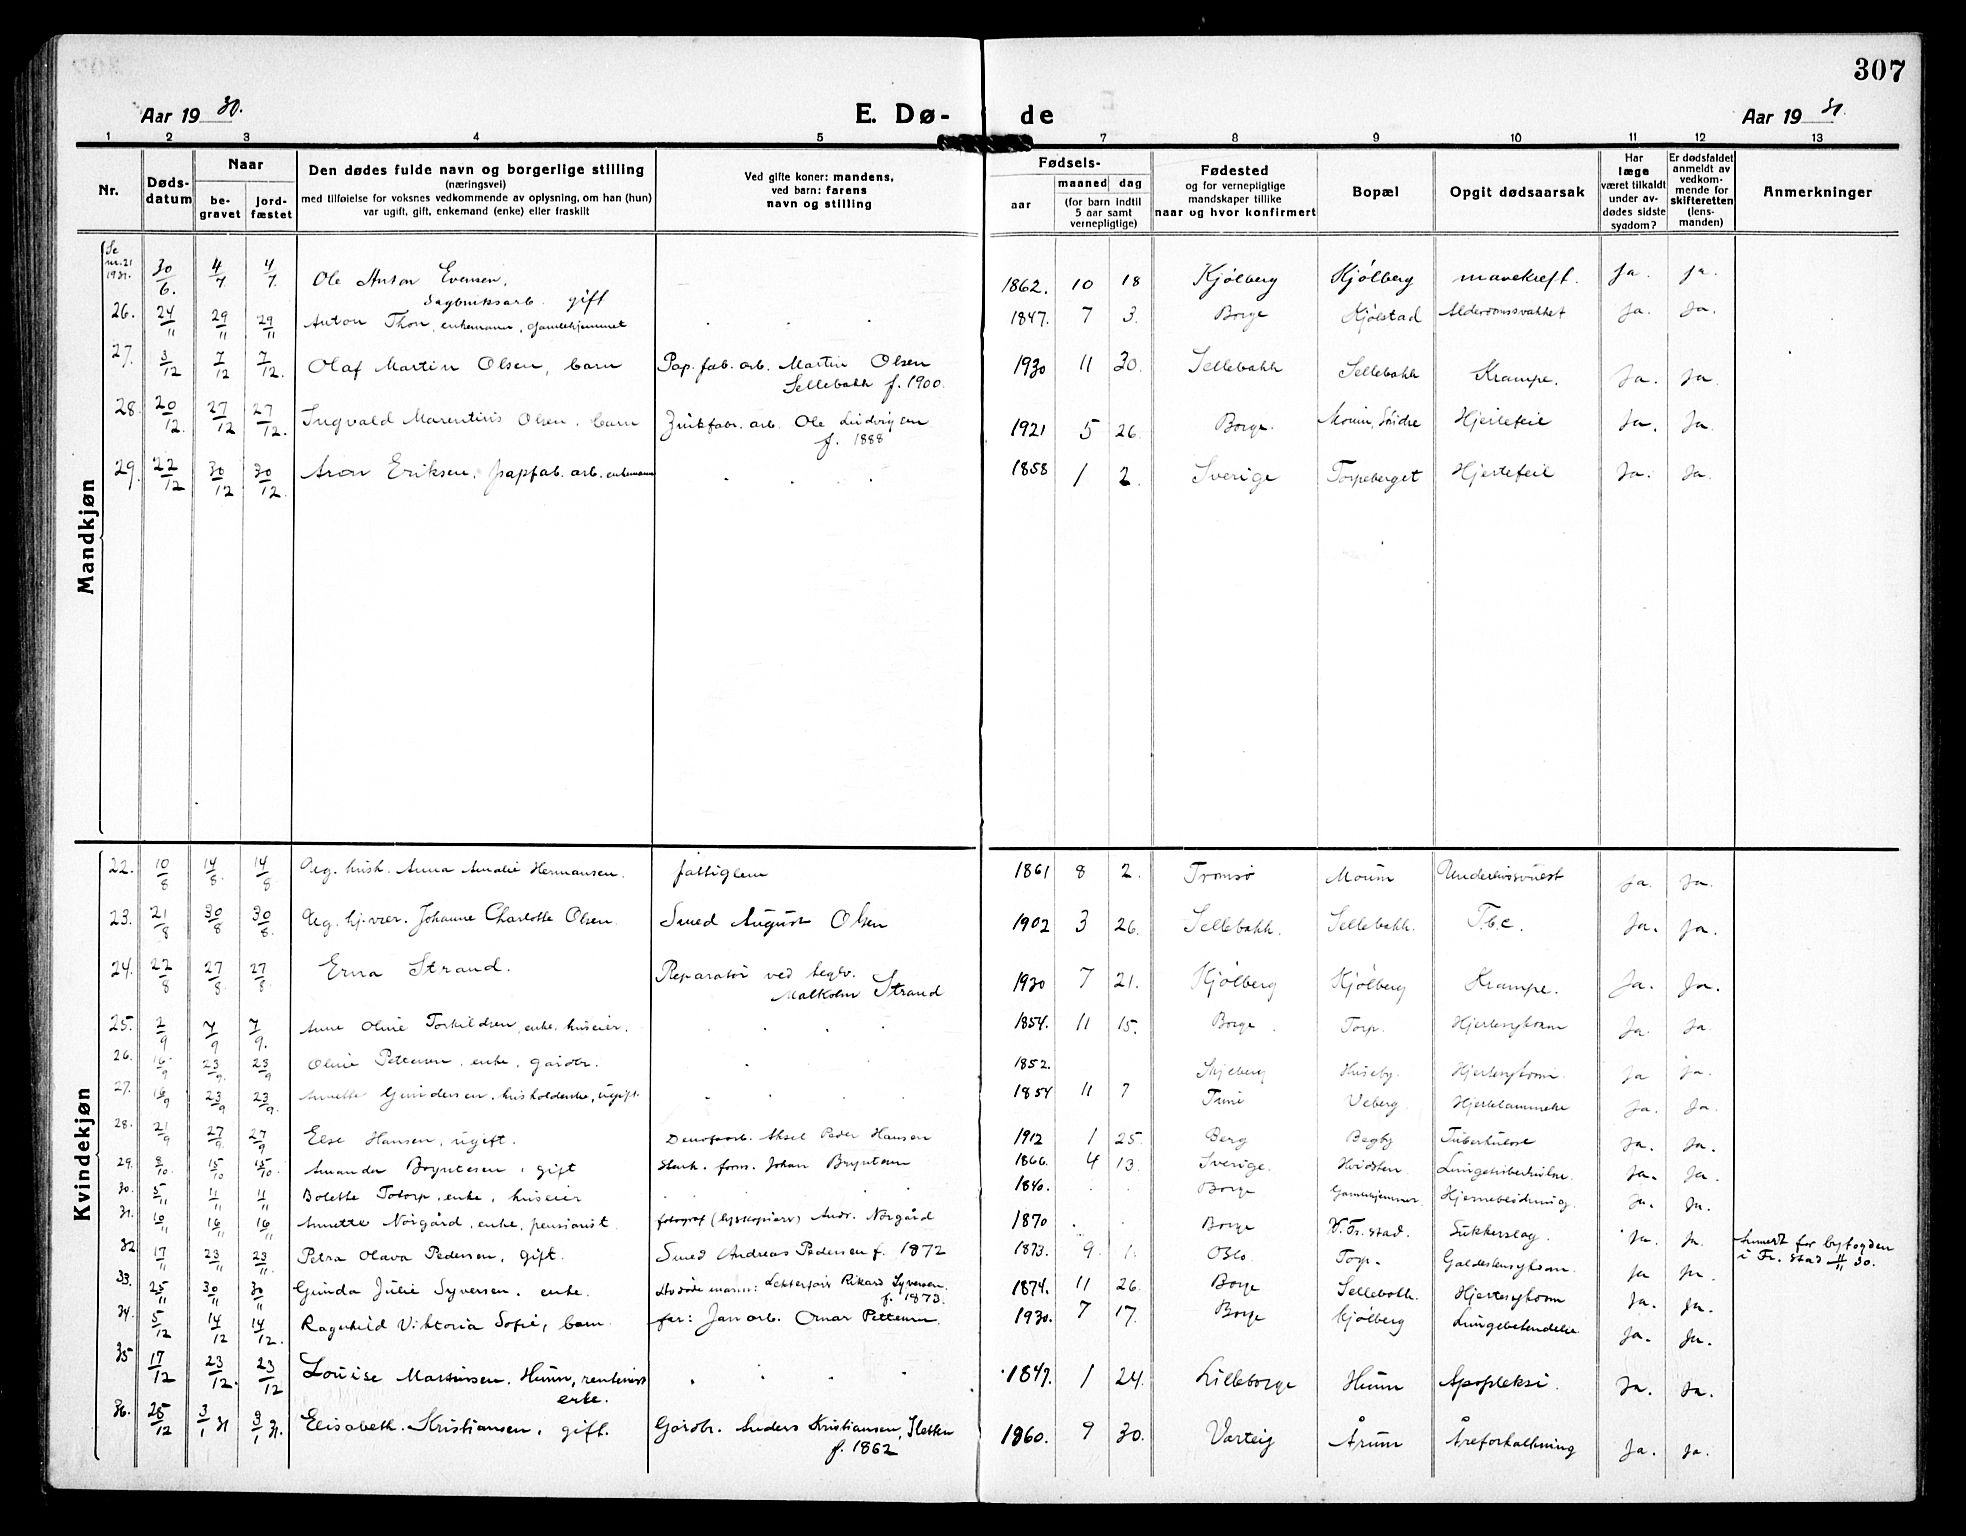 307
Aar 1930.
E. Dø-
de
Aar 1930.
1 2 3 4 5 7 8 9 10 11 12 13
Nr.
Døds-
datum
Naar
be-
gravet
jord-
fæstet
Den dødes fulde navn og borgerlige stilling
(næringsvei)
med tilføielse for voksnes vedkommende av oplysning, om han (hun)
var ugift, gift, enkemand (enke) eller fraskilt
Ved gifte koner: mandens,
ved barn: farens
navn og stilling
Fødsels-
aar
maaned
dag
(for barn indtil
5 aar samt
vernepligtige)
Fødested
og for vernepligtige
mandskaper tillike
naar og hvor konfirmert
Bopæl
Opgit dødsaarsak
Har
læge
været tilkaldt
under av-
dødes sidste
sygdom?
Er dødsfaldet
anmeldt av
vedkom-
mende for
skifteretten
(lens-
manden)
Anmerkninger
Mandkjøn
Se nr. 21 1931. 30/6. 4/7 4/7. Ole Anton Evensen, Sagbruksarb. gift 1862. 10 18 Kjølberg Kjølberg mavekreft. Ja. Ja.
26. 24/11 29/11 29/11 Anton Thon, enkemann, Gamlehjemmet . . . 1847. 7 3. Borge Kjølstad Alderdomssvakhet Ja. Ja.
27. 3/12 7/12 7/12. Olaf Martin Olsen, barn Pap. fab. arb. Martin Olsen Sellebakk f. 1900. 1930 11 30. Sellebakk Sellebakk Krampe. Ja. Ja.
28. 20/12. 27/12 27/12. Ingvald Marentius Olsen. barn Zinkfabr. arb. Ole Ludvigsen f. 1888 1921 5 26. Borge. Moum, Søndre Hjertefeil Ja. Ja.
29. 22/12 30/12 30/12. Aron Eriksen. papfab. arb. enkemann . . . 1858 1 2. Sverige Torpeberget Hjertefeil Ja. Ja.
Kvindekjøn
22. 10/8 14/8. 14/8 Pleg. husk. Anna Amalie Hermansen. fattiglem 1861 8 2. Tromsø Moum Ja. Ja.
23. 21/8 30/8 30/8. Ug. hj.vær. Johanne Charlotte Olsen. Smed August Olsen 1902 3 26. Sellebakk. Sellebakk. T.b.c. Ja. Ja.
24. 22/8 27/8. 27/8 Erna Strand. Reparatør ved teglv. Malkolm Strand 1930 7 21. Kjølberg Kjølberg Krampe. Ja. Ja.
25. 2/9 7/9 7/9. Anne Oline Torkildsen, enke, huseier. . . . 1854. 11 15. Borge. Torp. Hjertesykdom Ja. Ja.
26. 16/9 23/9. 23/9 Oline Pettersen, enke, gårdbr. . 1852. Skjeberg Huseby. Hjertesykdom. Ja Ja.
27. 16/9 23/9 23/9. Annette Gundersen, husholderske, ugift. . . . 1854 11 7 Tune Veberg. Hjertelammelse Ja. Ja.
28. 21/9 27/9. 27/9 Else Hansen, ugift. Aksel Peder Hansen 1912 1 25. Berg Begby Tuberkulose Ja. Ja.
29. 8/10. 15/10 15/10. Amanda Bryntesen, gift Johan Bryntesen 1866. 4 13. Sverige. Hvidsten Lungetuberkulose. Ja. Ja.
30. 5/11 11/11 11/11 Bolette Totorp, enke, huseier . . . 1840. . . Borge Gamlehjemmet Hjerneblødning Ja. Ja.
31. 10/11 16/11 16/11 Annette Norgård, enke, pensionist. fotograf (lyskopiarv) Andr. Norgård 1870 . . Borge V. Fr.stad. Sukkersyg. Ja. Ja. Anmeldt for byfogden i Fr. stad 11/11 30.
32 17/11 23/11 23/11. Petra Olava Pedersen, gift. Smed Andreas Pedersen f. 1872 1873. 9 1. Oslo Torp. Galdestensykdom. Ja Ja.
33. 25/11 30/11 30/11 Gunda Julie Syversen, enke. Avdøde mann: Rikard Syversen. f. 1873. 1874. 11 26. Borge Sellebakk. Hjertesykdom Ja. Ja.
34. 5/12 14/12 14/12. Ragnhild Viktoria Sofie, barn. far: Jarnarb. Ornar Pettersen. 1930. 7 17. Borge Kjølberg Lungebetendelse Ja. Ja.
35 17/12 23/12. 23/12 Louise Martinsen, Hunn, rentenist enke. . . . 1847. 1 24. Lilleborge Hunn Apopleksi. Ja. Ja.
36. 25/12 3/1 31 3/1 31. Elisabeth. Kristiansen, gift. Gårdbr. Anders Kristiansen, Sletten f. 1862 1860. 9 30. Varteig Årum Åreforkalkning Ja. Ja.